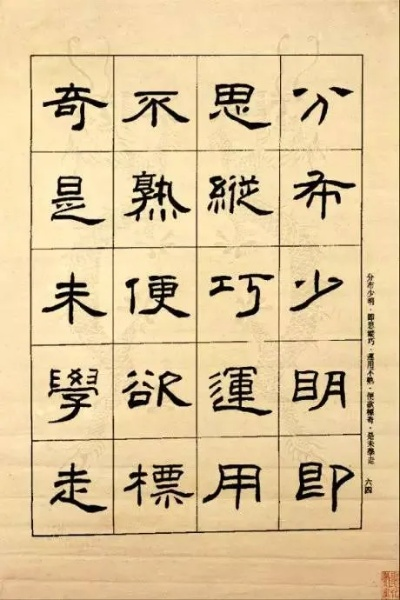 分布少明即
思縱巧運用
不熟便欲標
奇是未學走
分布少明，即思縱巧，運用不熟，便欲標奇，是未學走 六四